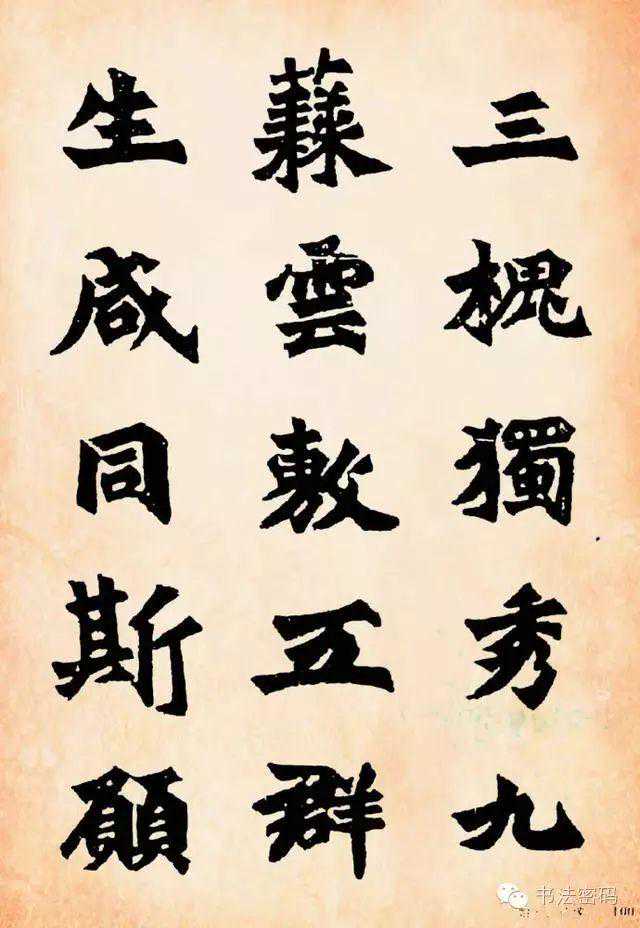 三槐獨秀九
蕀雲敷五群
生咸同斯願
书法密码
100